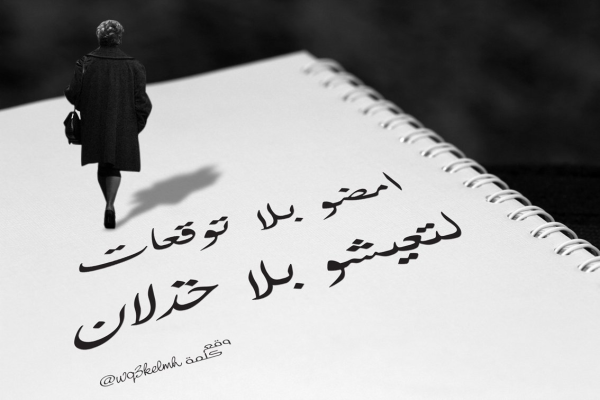 امضو بلا توقعات
لتعيشو بلا خذلان
وقع
كلمة @wq3kelmh